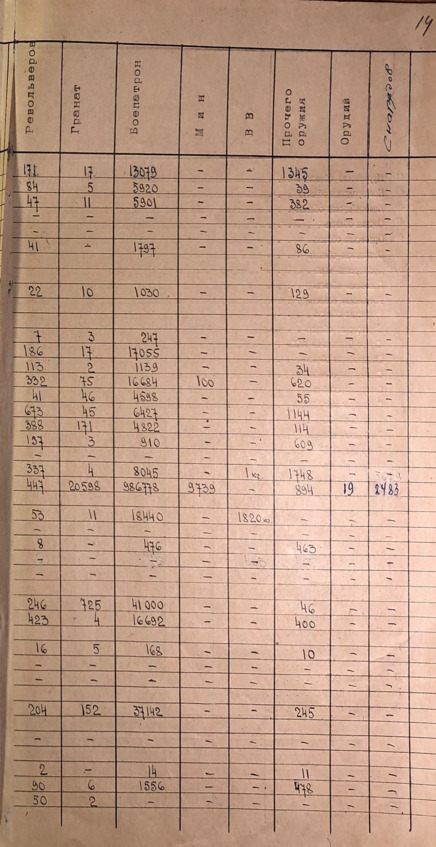 14
Револьверов Гранат Боепатрон Мин ВВ Прочего оружия Орудий Снарядов
171 17 13079 - - 1345 - -
84 5 5920 - - 39 - -
47 11 5901 - - 382 - -
- - - - - - - -
- - - - - - - -
41 - 1797 - - 86 - -
22 10 1030 - - 129 - -
7 3 247 - - - - -
186 17 17055 - - - - -
113 2 1139 - - 34 - -
332 75 16684 100 - 620 - -
41 46 4598 - - 55 - -
673 45 6427 - - 1144 - -
388 171 4822 - - 114 - -
197 3 910 - - 609 - -
- - - - - - - -
337 4 8045 - 1 кг 1748 - -
447 20598 986778 9739 - 894 19 2483
53 11 18440 - 1820 кг - - -
- - - - - - - -
8 - 476 - - 463 - -
- - - - - - - -
- - - - - - - -
246 725 41000 - - 46 - -
423 4 16692 - - 400 - -
16 5 168 - - 10 - -
- - - - - - - -
- - - - - - - -
204 152 37142 - - 245 - -
- - - - - - - -
2 - 14 - - 11 - -
90 6 1556 - - 478 - -
50 2 - - - - - -